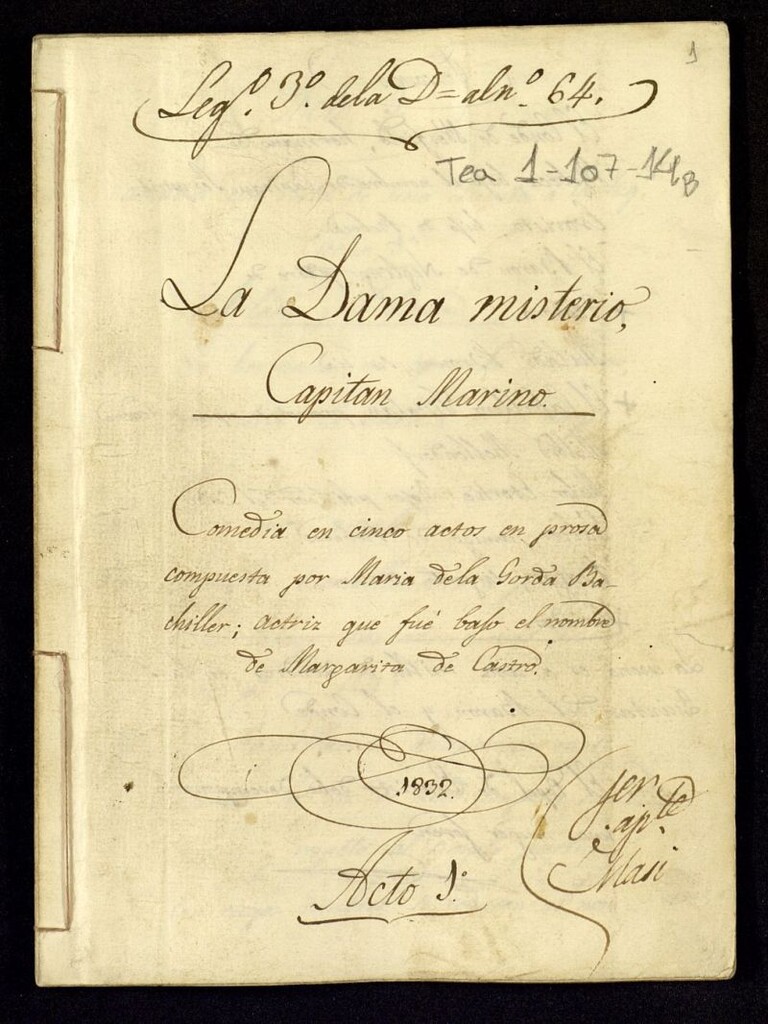 1
Legº. 3º. dela D= al nº. 64.
Tea 1-107-14B
La Dama misterio,
Capitan Marino.
Comedia en cinco actos en prosa
compuesta por Maria dela Gorda Ba-
chiller; actriz que fué bajo el nombre
de Margarita de Castro.
1832.
apte
Acto 1º.